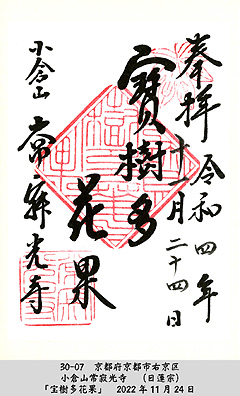 奉拝 令和四年
十一月二十四日
寶樹多
花果
小倉山
常寂光寺
30-07 京都府京都市右京区
小倉山常寂光寺 (日蓮宗)
「宝樹多花果」 2022年11月24日